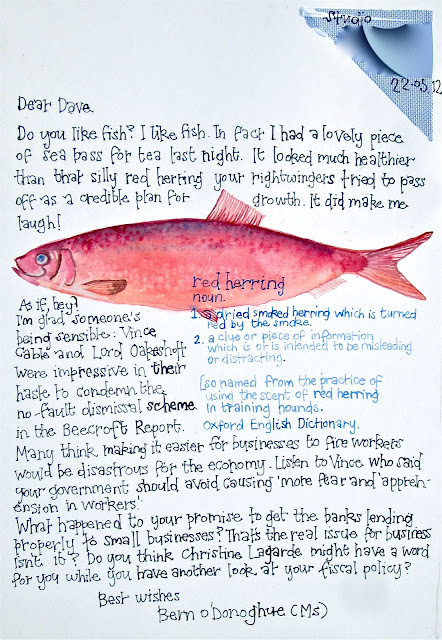 Studio
22.05.12
Dear Dave,
Do you like fish? I like fish. In fact I had a lovely piece
of sea bass for tea last night. It looked much healthier
than that silly red herring your rightwingers tried to pass
off as a credible plan for growth. It did make me
laugh!
red herring
noun.
1. a dried smoked herring which is turned
red by the smoke.
2. a clue or piece of information
which is or is intended to be misleading
or distracting.
[so named from the practice of
using the scent of red herring
in training hounds.
Oxford English Dictionary.
As if, hey!
I'm glad someone's
being sensible: Vince
Cable and Lord Oakeshott
were impressive in their
haste to condemn the
no-fault dismissal scheme
in the Beecroft Report.
Many think making it easier for businesses to fire workers
would be disastrous for the economy. Listen to Vince who said
your government should avoid causing 'more fear and appreh-
ension in workers.'
What happened to your promise to get the banks lending
properly to small businesses? That's the real issue for business
isn't it? Do you think Christine Lagarde might have a word
for you while you have another look at your fiscal policy?
Best wishes
Bern O'Donoghue (Ms)